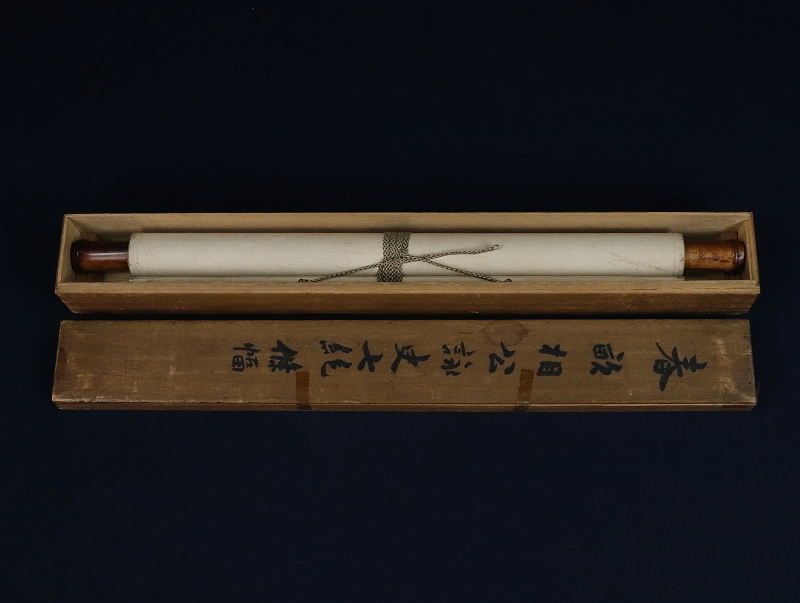 春畝相公詠史七絶條幅